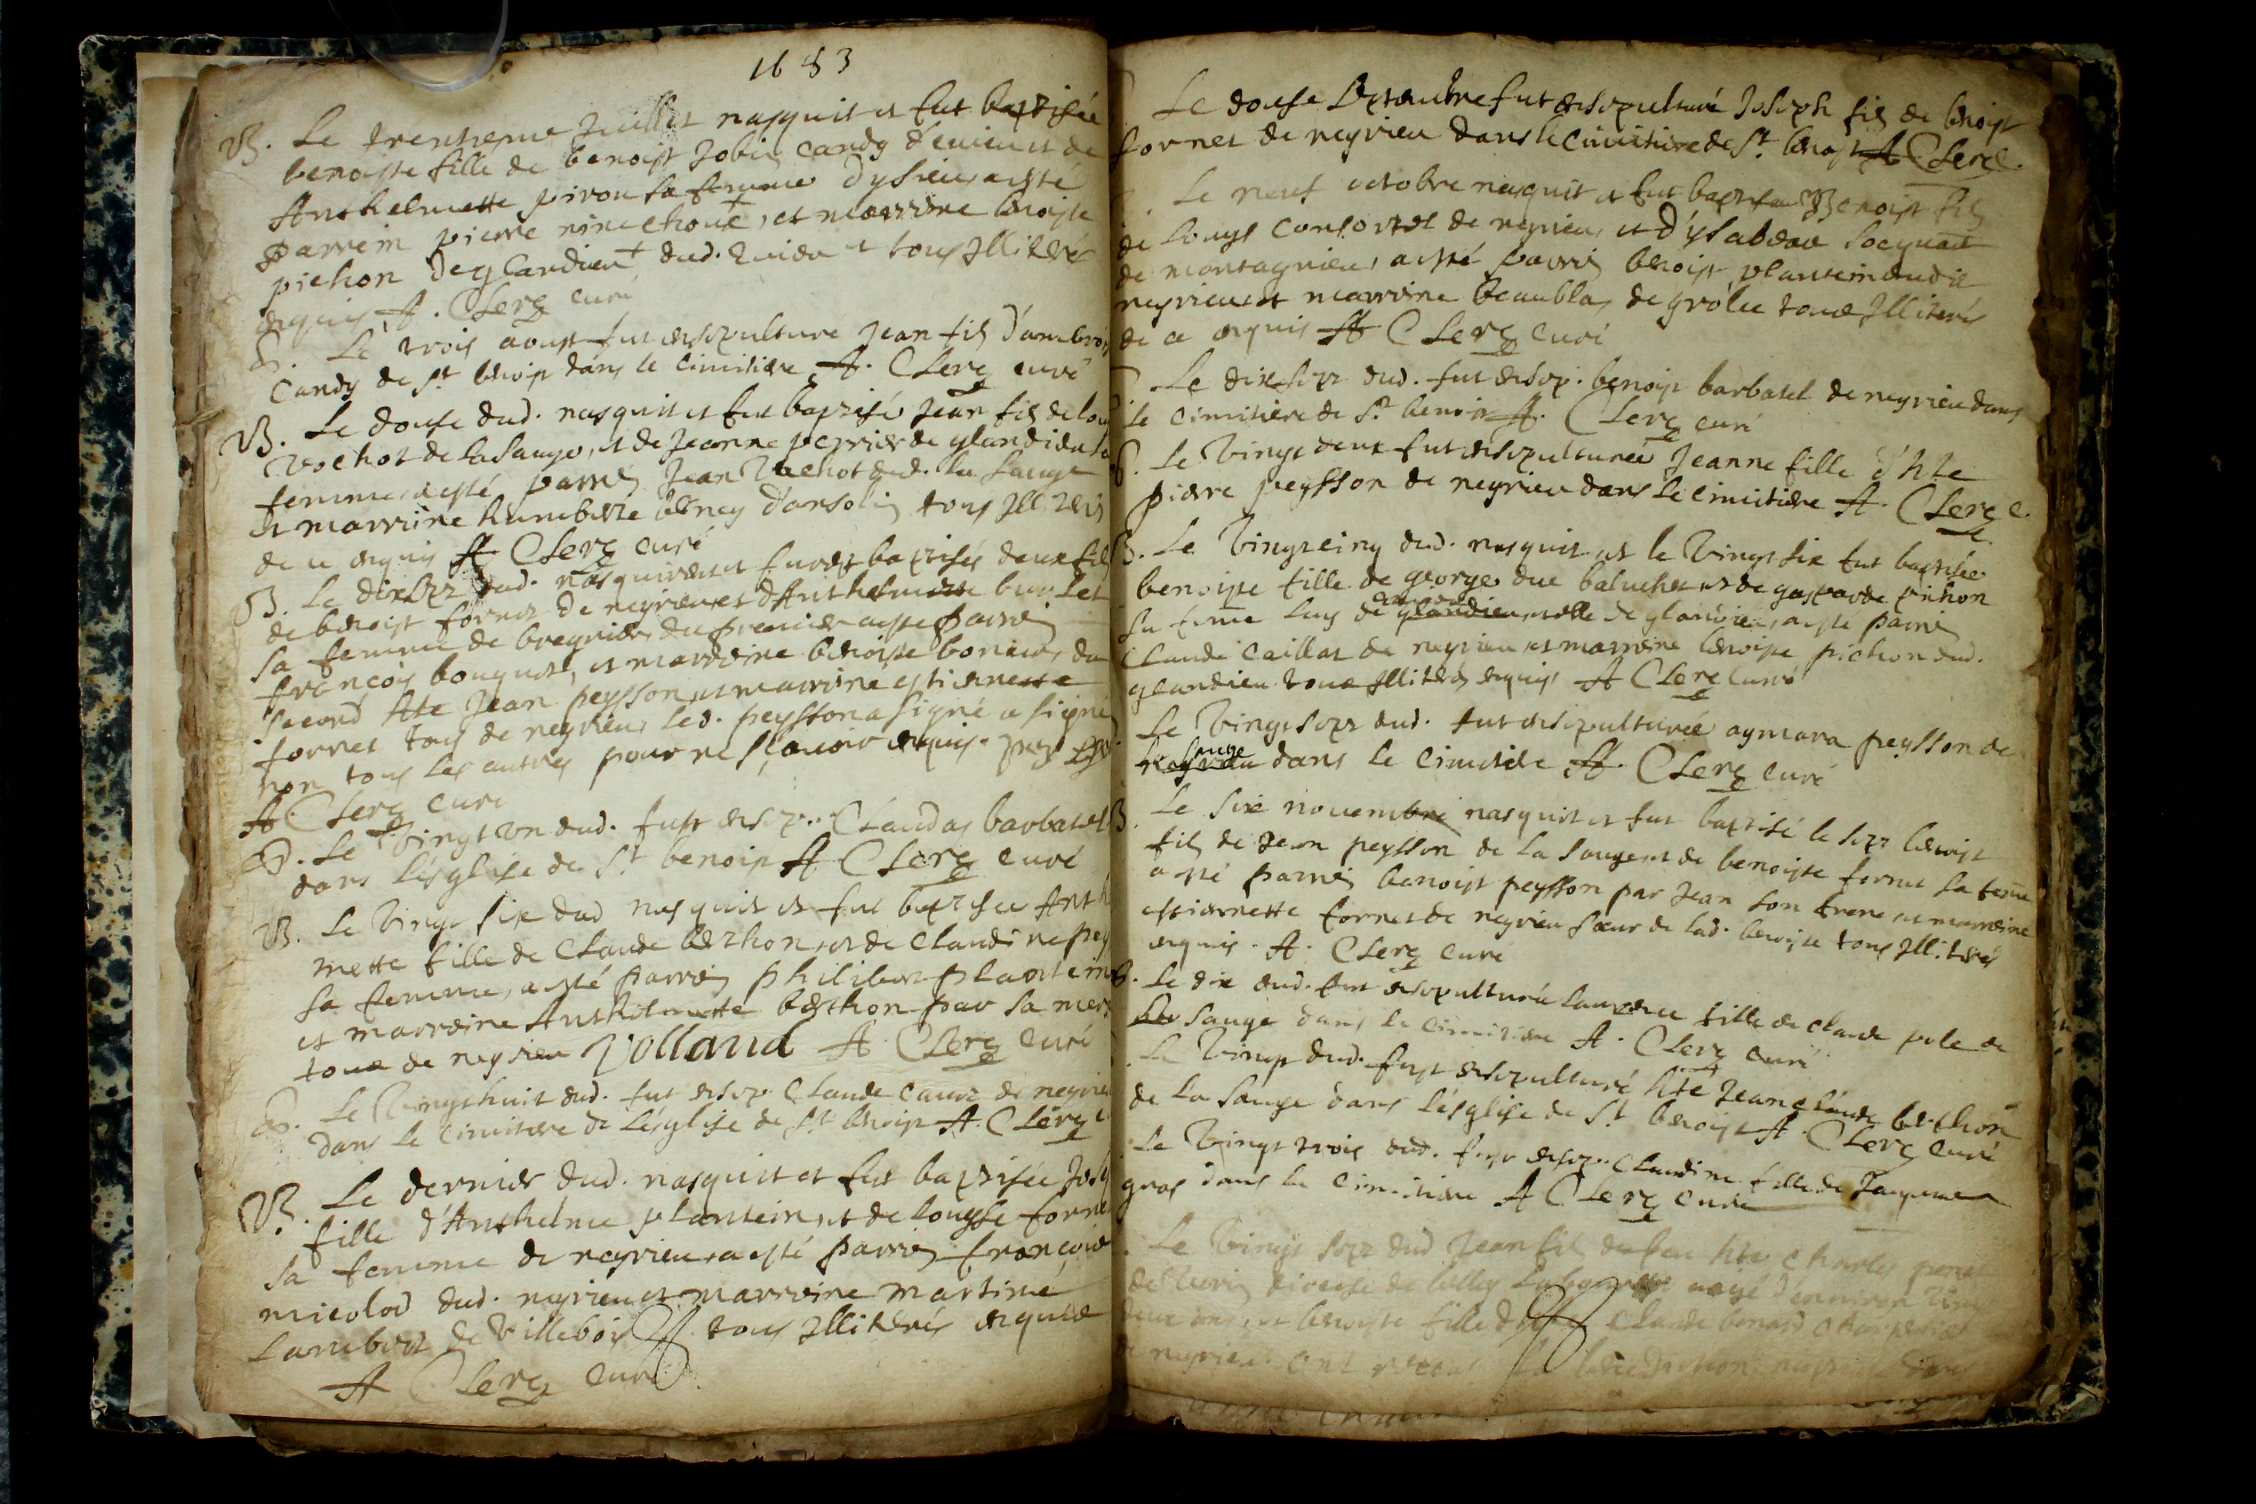 1683
B. Le trentieme Juillet nasquit et fut baptisée
benoiste fille de benoist Jobin Candy d'evieu et de
Anthelmette pivon sa femme Dysieu, a esté
Parrein pierre ninechoud, et marrine benoiste
pichon De glandieu dud. Evieu et tous Illiteré
enquis A. Clerg curé
S. Le trois aoust fut ensepulturé Jean fils d'ambroi
Candy de St benoist dans le cimitiere A. Clerg curé
B. Le douse dud. nasquit et fut baptisé Jean fils de lou
Vochot de la sauge, et de Jeanne perrier de glandieu sa
femme, a esté parrein Jean Vochot dud. la sauge
et marrine humberte d'ansolin tous Illiterés
de ce enquis A. Clerg curé
B. Le dixsept dud. nasquirent et furent baptisés deux fils
de benoist fornet de neyrieu et d'Anthelmette burlet
sa femme de bregnier, du premier a esté parrein
françois bouquet, et marreine benoiste bonieu, du
second hte Jean peysson, et marrine estiennette
fornet tous de neyrieu, led. peysson a signé a signé
non tous les autres pour ne sçavoir enquis.
A. Clerg curé
S. Le vingt un dud. fust ensep. Claudas barbatel
dans l'esglise de St benoist A Clerg curé
B. Le vingt six dud nasquit et fut baptisee Anth
mette fille de Claude berthon, et de Claudine pey
sa femme, a esté parrein philibert plantein
et marreine Anthelmette berthon par sa mere
tous de neyrieu Rolland A. Clerg Curé
S. Le vingthuit dud. fut ensep. Claude de neyrieu
dans le cimitiere de l'esglise de St benoist A. Clerg c
B. Le dernier dud. nasquit et fut baptisée
fille d'Anthelme plantein, et de louyse forne
sa femme de neyrieu, a esté parrein françois
micolod dud. neyrieu et marreine martine
Lambert de Villebois tous Illiterés enquis
A Clerg Curé
Le douse septembre fut ensepulturé Joseph fils de benoist
fornet de neyrieu dans le cimitiere de St benoist A Clerg c.
Le neuf octobre nasquit et fut baptisé Benoist fils
de Louys Consortet de neyrieu, et d'ysabeau Socquat
de montagnieu, a esté parrein benoist plantein dudit
neyrieu et marreine beaublas de grolee tous Illiterés
de ce enquis A Clerg curé
Le dixsept dud. fut ensep. benoist barbatel de neyrieu dans
le cimitiere de St benoist A. Clerg curé
S. Le vingt deux fut ensepulturée Jeanne fille d'hte
pierre peysson de neyrieu dans le cimitiere A. Clerg c.
B. Le Vingt cinq dud. nasquit et le Vingt six fut baptisée
benoiste fille de george duc baluchet et de gasparde pichon
sa feme luy de glandieu, elle de glandieu, a esté parrein
Claude Caillat de neyrieu, et marreine benoiste pichon dud.
glandieu tous Illiterés enquis A Clerg curé
Le vingtsept dud. fut ensepulturée aymara peysson de
la sauge
neyrieu dans le cimitiere A. Clerg curé
B. Le six novembre nasquit et fut baptisé le sept benoist
fils de Jean peysson de la sauge et de benoiste fornet sa feme
a esté parrein benoist peysson par Jean son frere, et marreine
estiennette fornet de neyrieu sœur de lad. benoiste tous Illiterés
enquis. A. Clerg curé
S. Le dix dud. fut ensepulturée laurence fille de claude pole de
la sauge dans le cimitiere A. Clerg curé
Le Vingt dud. fust ensepulturé hte Jean claude berthon
de la sauge dans l'esglise de St benoist A. Clerg curé
Le Vingt trois dud. fust ensep. Claudine fille de Jaqueme
gros dans le cimitiere A Clerg curé
Le Vingt sept dud Jean fils de feu hte Charles
diocese de belley aagé d'environ vingt
deux ans, et benoiste fille d'hte Claude charpentier
de neyrieu ont receu la benediction nuptiale dans